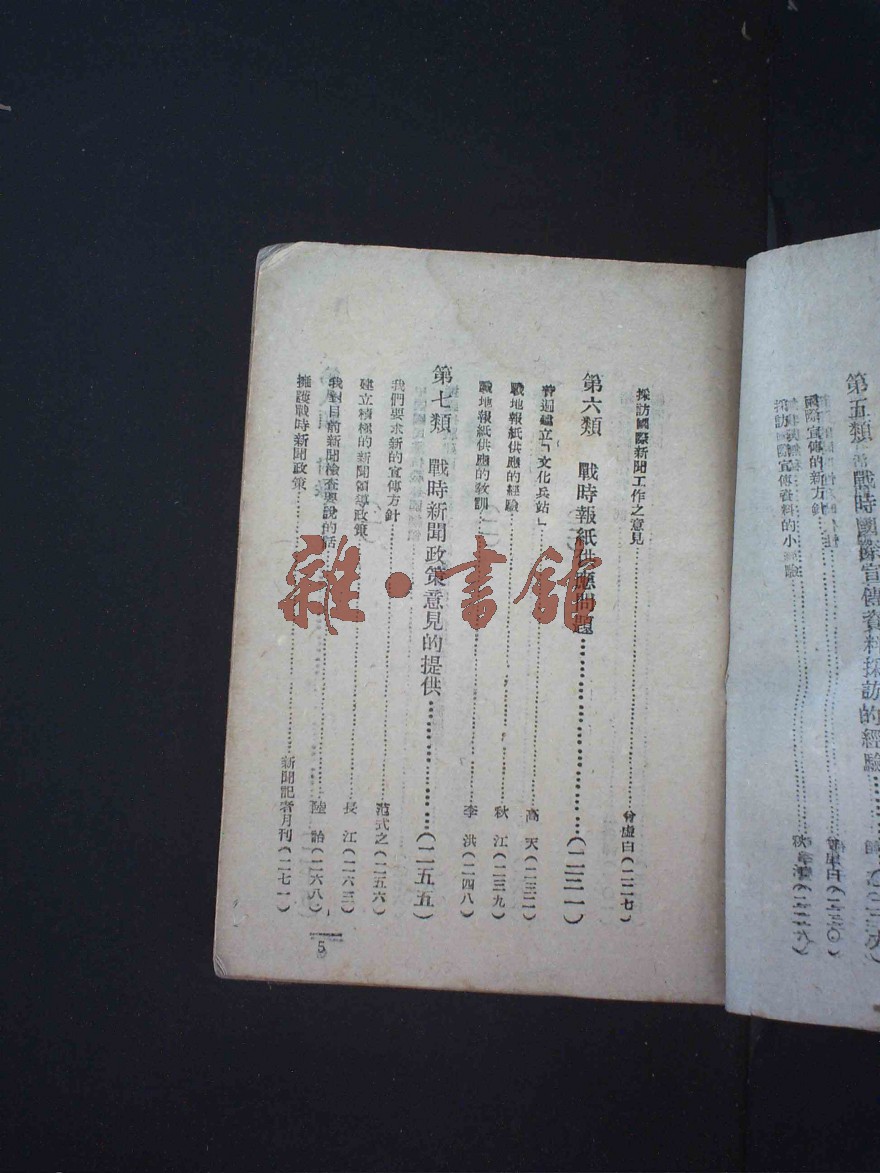 第五類 戰時國際宣傳資料採訪的經驗
國際宣傳的新方針
採訪國際宣傳資料的小經驗
採訪國際新聞工作之意見…………曾虛白（二二七）
第六類 戰時報紙供應問題…………（二三一）
普遍建立「文化兵站」…………高天（二三二）
戰地報紙供應的經驗…………秋江（二三九）
戰地報紙供應的教訓…………李洪（二四八）
第七類 戰時新聞政策意見的提供…………（二五五）
我們要求新的宣傳方針…………范式之（二五六）
建立積極的新聞領導政策…………長江（二六三）
我對目前新聞檢查要說的話…………陸詒（二六八）
擁護戰時新聞政策…………新聞記者月刊（二七一）
5
雜·書館